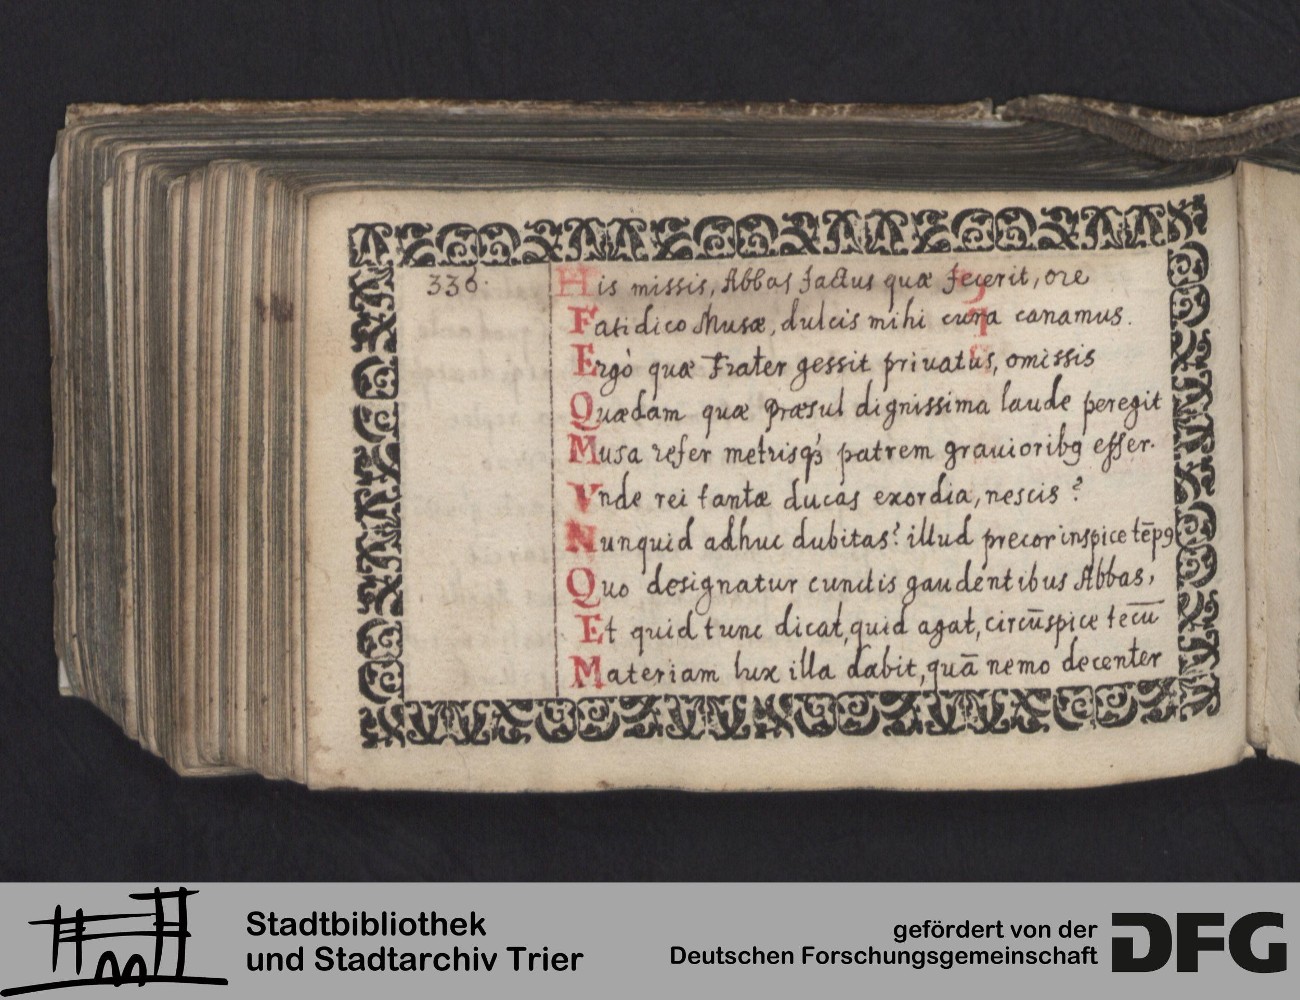 336.
His missis, Abbas factus quæ fecerit, ore
Fatidico Musæ, dulcis mihi cura canamus.
Ergò quæ Frater gessit priuatus, omissis
Quædam quæ Præsul dignissima laude peregit
Musa refer metrisqꝫ patrem grauioribꝰ effer.
Vnde rei tantæ ducas exordia, nescis?
Nunquid adhuc dubitas? illud precor inspice tēpꝰ
Quo designatur cunctis gaudentibus Abbas,
Et quid tunc dicat, quid agat, circūspice tecū
Materiam lux illa dabit, quā nemo decenter
Stadtbibliothek
und Stadtarchiv Trier
gefördert von der
Deutschen Forschungsgemeinschaft
DFG